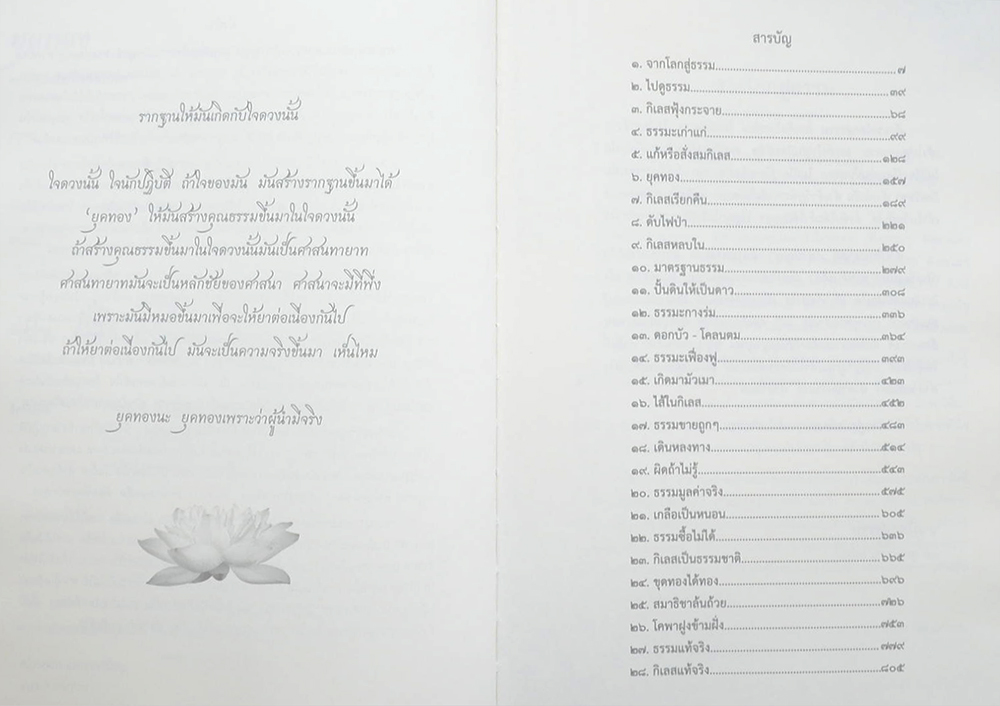 รากฐานให้มันเกิดกับใจดวงนั้น
ใจดวงนั้น ใจนักปฏิบัติ ถ้าใจของมัน มันสร้างรากฐานขึ้นมาได้
'ยุคทอง' ให้มันสร้างคุณธรรมขึ้นมาในใจดวงนั้น
ถ้าสร้างคุณธรรมขึ้นมาในใจดวงนั้นมันเป็นศาสนทายาท
ศาสนทายาทมันจะเป็นหลักชัยของศาสนา ศาสนาจะมีที่พึ่ง
เพราะมันมีหมอขึ้นมาเพื่อจะให้ยาต่อเนื่องกันไป
ถ้าให้ยาต่อเนื่องกันไป มันจะเป็นความจริงขึ้นมา เห็นไหม
ยุคทองนะ ยุคทองเพราะว่าผู้นำมีจริง
สารบัญ
๑. จากโลกสู่ธรรม....................๗
๒. ไปดูธรรม....................๓๙
๓. กิเลสฟุ้งกระจาย....................๖๘
๔. ธรรมะเก่าแก่....................๙๙
๕. แก้หรือสั่งสมกิเลส....................๑๒๘
๖. ยุคทอง....................๑๕๗
๗. กิเลสเรียกคืน....................๑๘๙
๘. ดับไฟป่า....................๒๒๑
๙. กิเลสหลบใน....................๒๕๐
๑๐. มาตรฐานธรรม....................๒๗๙
๑๑. ปั้นดินให้เป็นดาว....................๓๐๘
๑๒. ธรรมะกางร่ม....................๓๓๖
๑๓. ดอกบัว - โคลนตม....................๓๖๔
๑๔. ธรรมะเฟื่องฟู....................๓๙๓
๑๕. เกิดมามัวเมา....................๔๒๓
๑๖. ไส้ในกิเลส....................๔๕๒
๑๗. ธรรมขายถูกๆ....................๔๘๓
๑๘. เดินหลงทาง....................๕๑๔
๑๙. ผิดถ้าไม่รู้....................๕๔๓
๒๐. ธรรมมูลค่าจริง....................๕๗๕
๒๑. เกลือเป็นหนอน....................๖๐๕
๒๒. ธรรมซื้อไม่ได้....................๖๓๖
๒๓. กิเลสเป็นธรรมชาติ....................๖๖๕
๒๔. ขุดทองได้ทอง....................๖๙๖
๒๕. สมาธิชาล้นถ้วย....................๗๒๖
๒๖. โคพาฝูงข้ามฝั่ง....................๗๕๓
๒๗. ธรรมแท้จริง....................๗๗๙
๒๘. กิเลสแท้จริง....................๘๐๕